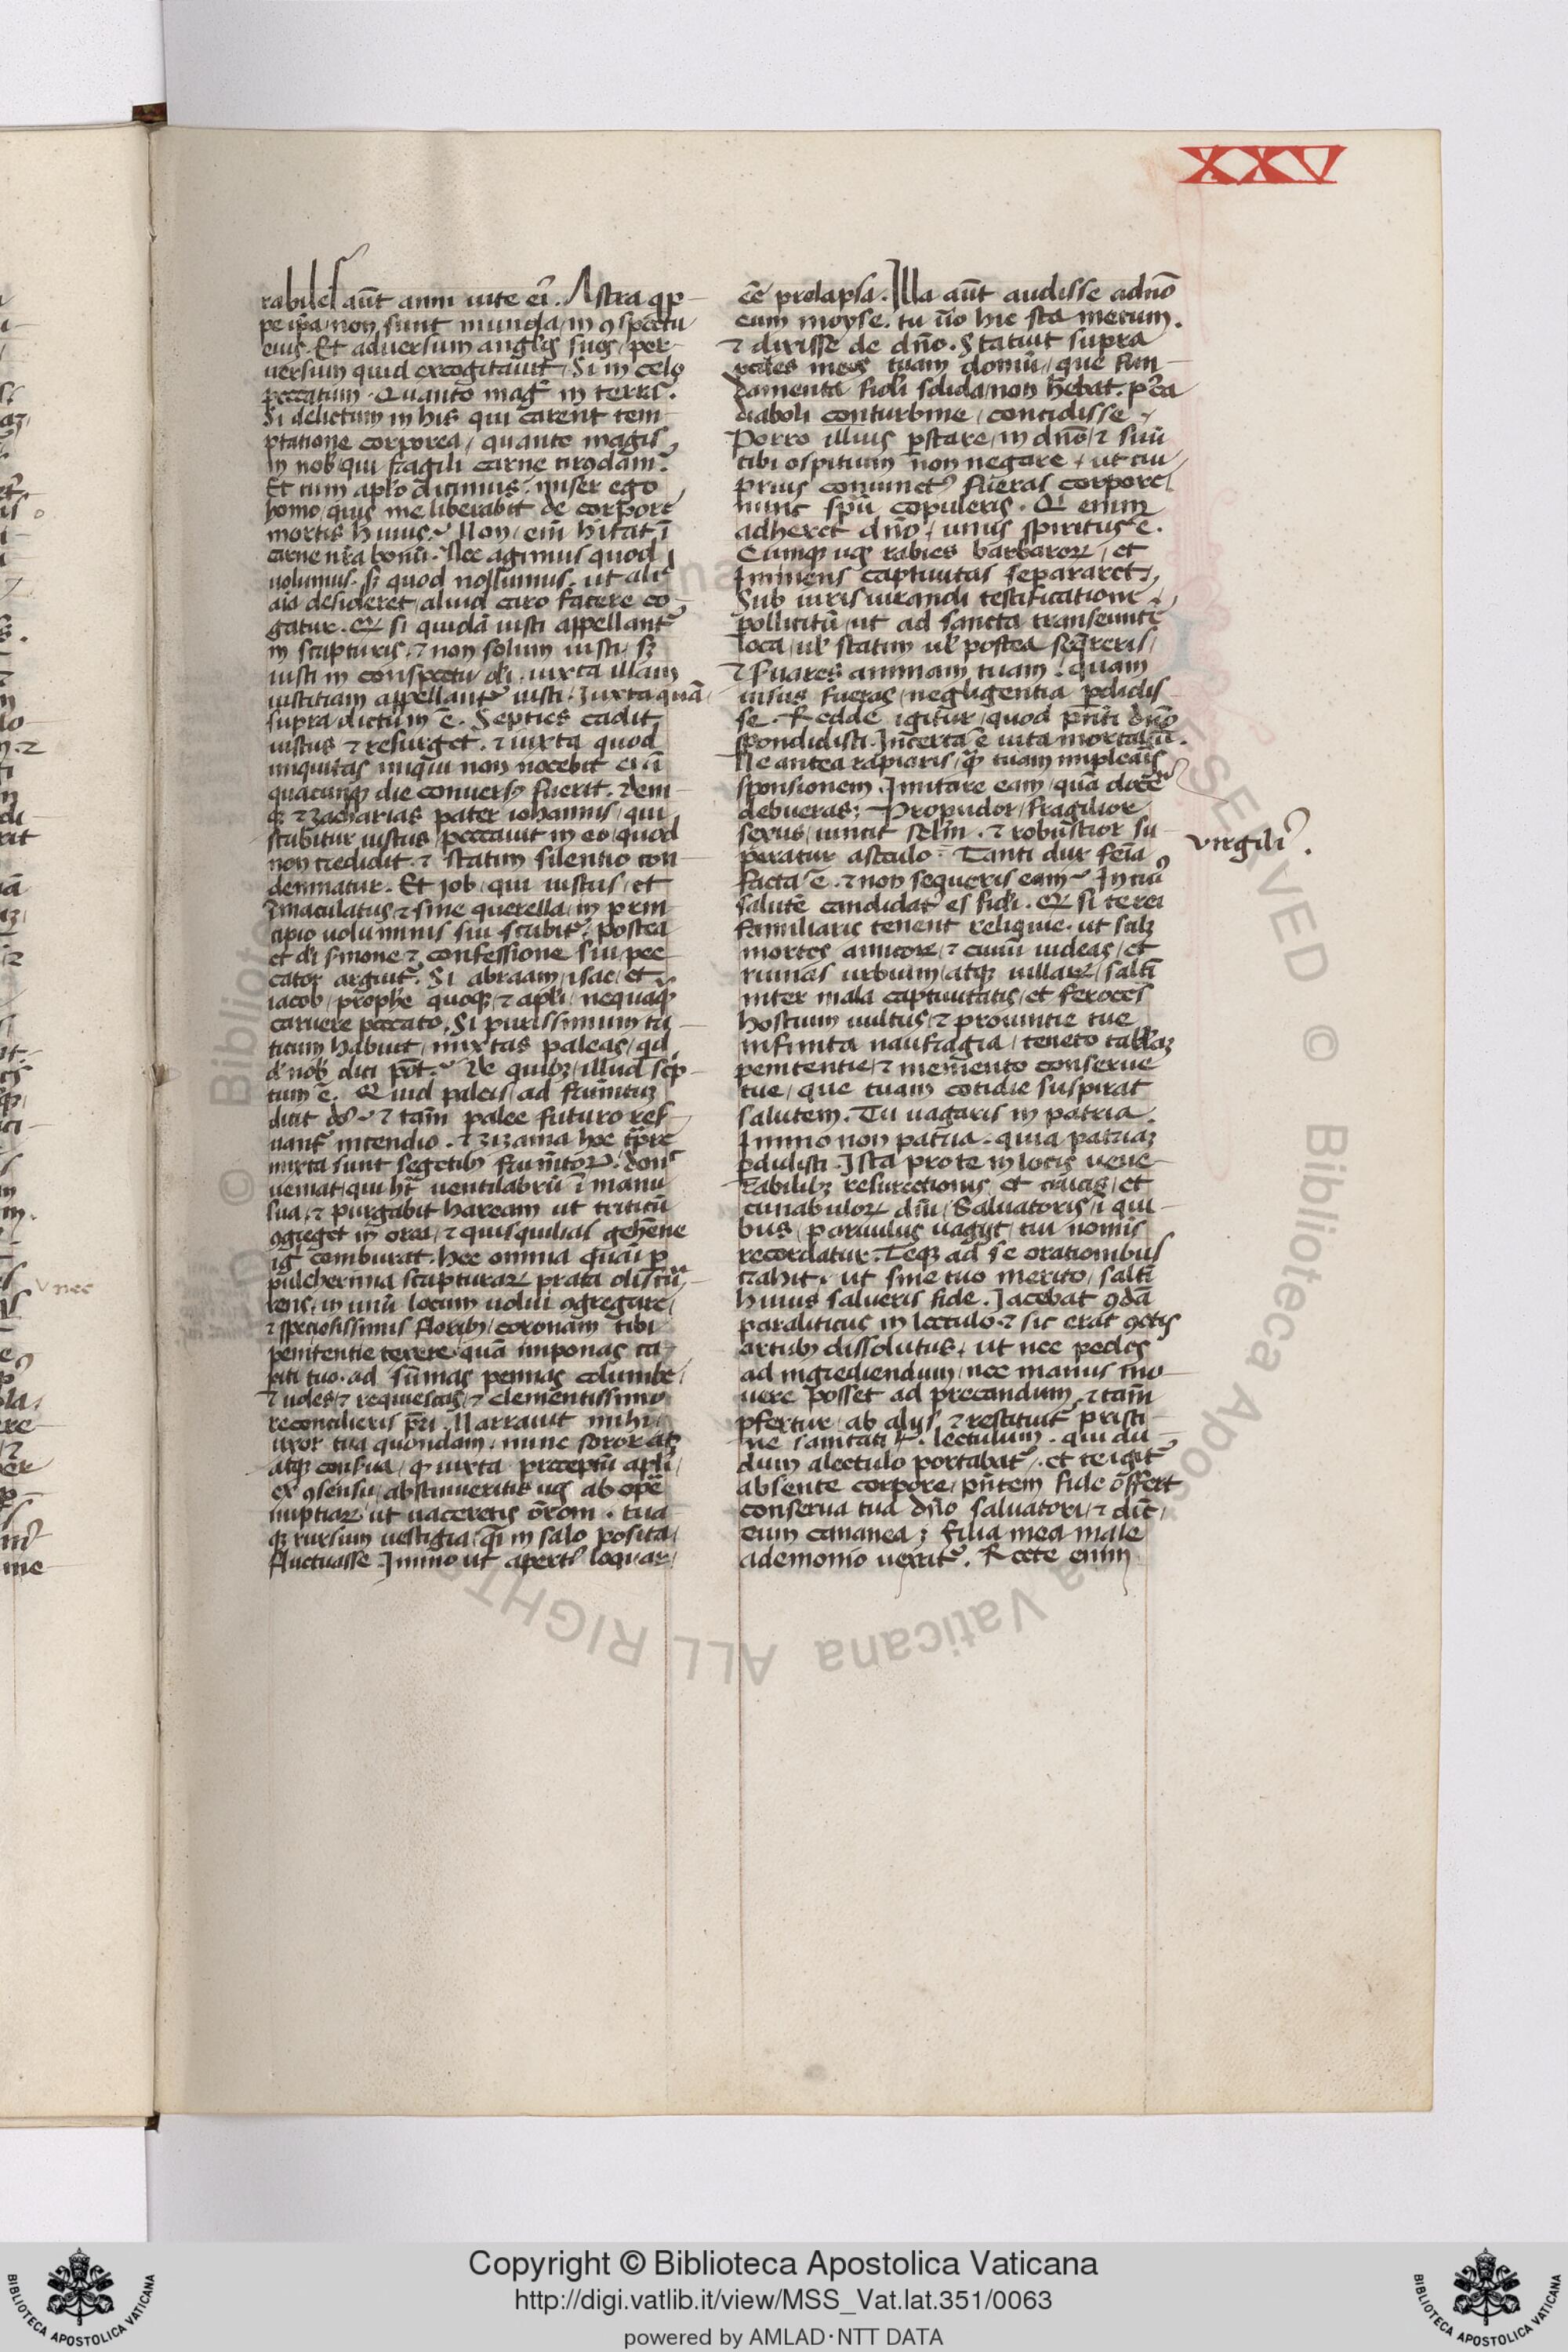 XXV
rabiles aūt anni uite ei᷒. Astra qp
pe ip̄a non sunt munda, in ꝯspectu
eius. Et aduersum angl̓os suos, per
uersum quid excogitauit. Si in celo
peccatum. Quanto mag᷒ in terris.
Si delictum in his qui carent tem
ptatione corporea, quanto magis
in nob̓ qui fragili carne circūdam᷒.
Et cum apl̓o dicimus. miser ego
homo, quis me liberabit de corpore
mortis huius. Non, eni᷒ hitat ī
carne nr̄a bonū. Nec agimus quod
uolumus. sꝫ quod nolumus. ut aliꝰ
aīa desideret, aliud caro facere co
gatur. Qꝫ si quidā iusti appellantᷣ
in scripturis, ⁊ non solum iusti, sꝫ
iusti in conspectu dei. iuxta illam
iustitiam appellantᷣ iusti. Juxta quā
supra dictum ē. Septies cadit
iustus ⁊ resurget. ⁊ iuxta quod
iniquitas iniqui non nocebit ei ī
quacunqꝫ die conuersꝰ fuerit. Deni
qꝫ ⁊ Zacharias pater iohannis, qui
scribitur iustus, peccauit in eo, quod
non credidit. ⁊ statim silentio con
demnatur. Et Job, qui iustus, et
īmaculatus, ⁊ sine querella, in prin
cipio uoluminis sui scribitᷣ. postea
et di sermone ⁊ confessione sui pec
cator arguitᷣ. Si abraam, isac, et
iacob, prophe quoqꝫ, ⁊ apl̓i, nequaqꝫ
caruere peccato. Si purissimum tri
ticum habuit, mixtas paleas, qd
d̓ nob̓ dici pōt. De quibꝫ, illud scrip
tum ē. Quid paleis, ad frumētuꝫ
dicit dn̄s. ⁊ tam̄ palee futuro res
uantᷣ incendio. ⁊ zizania hoc tp̄re
mixta sunt segetibꝫ frumētoꝝ. donᷣ
ueniat, qui ht̄ uentilabrū ī manu
sua, ⁊ purgabit haream ut triticū
ꝯgreget in orea, ⁊ quisquilias gehēne
igī comburat. Hec omnia quasi ꝑ
pulcherrima scripturaꝝ prata discur
rens, in unū locum uolui ꝯgregare,
⁊ speciosissimis floribꝫ, coronam tibi
penitentie texere. quā imponas ca
piti tuo. ad sūmas pennas columbe,
⁊ uoles, ⁊ requiescas, ⁊ clementissimo
reconcilieris pr̄i. Narrauit mihi,
uxor tua quondam, nunc soror atqꝫ
atqꝫ conserua, qꝫ iuxta preceptū apl̓i,
ex ꝯsensu, abstinueritis uos ab ope
nuptiaꝝ ut uaceretis or̄oni. tua
qꝫ rursum uestigia, q̄i in salo posita,
fluctuasse. Immo ut apertiꝰ loquar,
cē prolapsa. Illa aūt audisse a dn̄o
cum moyse. tu ūo hic sta mecum.
⁊ dixisse de dn̄o. Statuit supra
pedes meos tuam domū, que fun
damenta fidei solida, non hēbat. pc̄a
diaboli conturbine, concidisse.
Porro illius pstare, in dn̄o, ⁊ suū
tibi ospitium non negare. ut cui
prius coniunctꝰ fueras corpore
nunc spū copuleris. Qꝫ enim
adheret dn̄o, unus spiritus ē.
Cumqꝫ uos rabies barbaroꝝ, et
Iminens captiuitas separaret,
Sub iurisiurandi testificatione,
pollicitū, ut ad sancta transeuntē
loca, ul̓ statim ul̓ postea seq̄reris,
⁊ suares animam tuam, quam
uisus fueras, negligentia pdidis
se. Redde igitur, quod pn̄ti dn̄o
spondidisti. Incerta ē uita mortaliū.
Ne antea rapiaris, qꝫ tuam impleas
sponsionem. Imitare eam, quā docēᷣ
debueras. Propudor, fragilior
sexus, uincit sclm. ⁊ robustior su
peratur asclo. Tanti dux feīa
facta ē. ⁊ non sequeris eam. In cuiꝰ
salutē candidatꝰ es fidi. Qꝫ si te rei
familiaris tenent reliquie. ut scilꝫ
mortes amicoꝝ, ⁊ ciuiū uideas, et
ruinas urbium, atqꝫ uillaꝝ, saltī
inter mala captiuitatis, et feroces
hostium uultus, ⁊ prouintie tue
infinita naufragia, teneto tabl̓aꝫ
penitentie, ⁊ memento conserue
tue, que tuam cotidie suspirat
salutem. Tu uagaris in patria.
Immo non patria. quia patriaꝫ
pdidisti. Ista pro te in locis uene
rabilibꝫ resurrectionis, et crucis, et
cunabuloꝝ dn̄i, Saluatoris, ī qui
bus, paruulus uagyt, tui nomīs
recordatur. Teqꝫ ad se orationibus
trahit, ut sine tuo merito, saltī
huius salueris fide. Jacebat qdā
paraliticus in lectulo, ⁊ sic erat ꝯctis
artubꝫ dissolutus, ut nec pedes
ad ingrediendum, nec manus mo
uere posset ad precandum. ⁊ tam̄
pfertur, ab alys, ⁊ restituitᷣ pristi
ne sanitati. lectulum. qui du
dum a lectulo portabatᷣ. et te igitᷣ
absente corpore, pn̄tem fide offert
conserua tua dn̄o saluatori, ⁊ dic̄t,
cum cananea; filia mea male
a demonio uexatᷣ. Recte enim
virgiliꝰ.
v nec
Copyright © Biblioteca Apostolica Vaticana
http://digi.vatlib.it/view/MSS_Vat.lat.351/0063
powered by AMLAD·NTT DATA